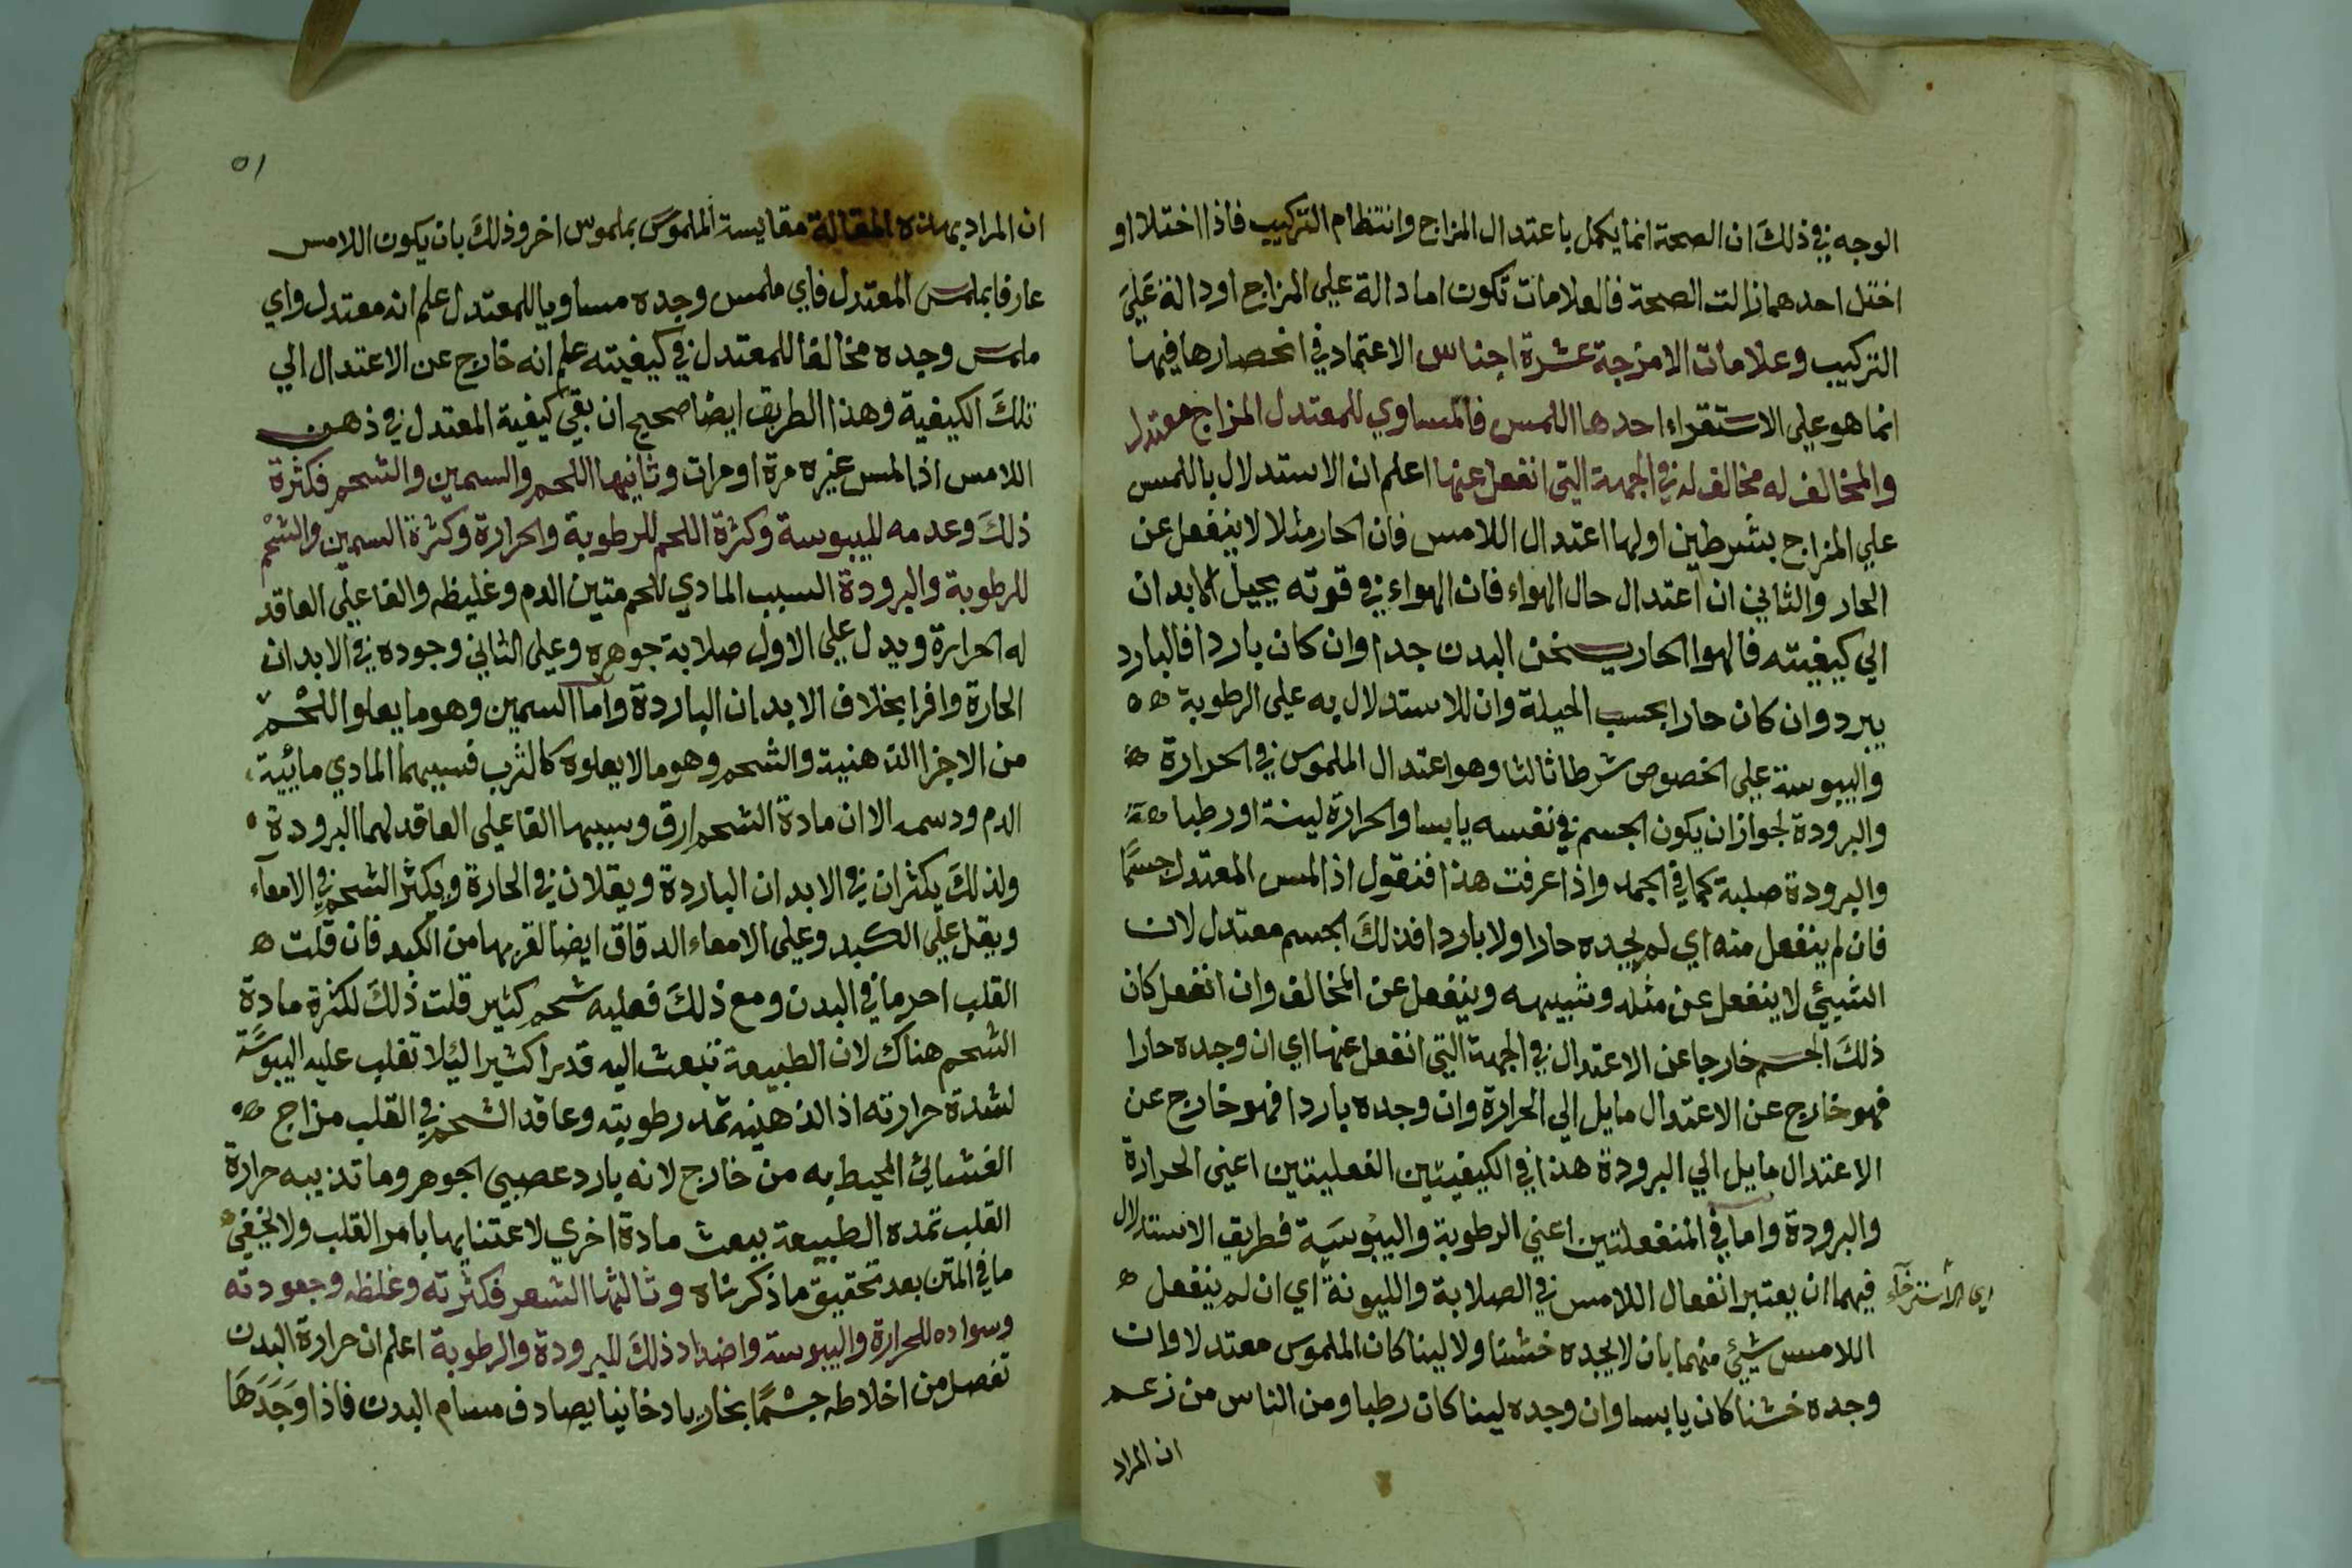 الوجه في ذلك ان الصحة انما يكمل باعتدال المزاج وانتظام التركيب فاذا اختلا او
اختل احدهما زالت الصحة فالعلامات تكون اما دالة علي المزاج او دالة علي
التركيب وعلامات الامزجة عشرة اجناس الاعتماد في انحصارها فيها
انما هو علي الاستقراء احدها اللمس فالمساوي للمعتدل المزاج معتدل
والمخالف له مخالف له في الجهة التي انفعل عنها اعلم ان الاستدلال باللمس
علي المزاج بشرطين اولها اعتدال اللامس فان الحار مثلا لا ينفعل عن
الحار والثاني ان اعتدال حال الهواء فان الهواء في قوته يحيل الابدان
الي كيفيته فالهوا الحار يسخن البدن جدا وان كان باردا فالبارد
يبرد وان كان حارا بحسب الحيلة وان للاستدلال به علي الرطوبة
واليبوسة علي الخصوص شرطا ثالثا وهو اعتدال الملموس في الحرارة
والبرودة لجواز ان يكون الجسم في نفسه يابسا والحرارة لينة او رطبا
والبرودة صلبة كما في الجمد واذا عرفت هذا فنقول اذا لمس المعتدل جسمًا
فان لم ينفعل منه اي لم يجده حارا ولا باردا فذلك الجسم معتدل لان
الشيئ لا ينفعل عن مثله وشبيهه وينفعل عن المخالف وان انفعل كان
ذلك الجسم خارجا عن الاعتدال في الجهة التي انفعل عنها اي ان وجده حارا
فهو خارج عن الاعتدال مايل الي الحرارة وان وجده باردا فهو خارج عن
الاعتدال مايل الي البرودة هذا في الكيفيتين الفعليتين اعني الحرارة
والبرودة واما في المنفعلتين اعني الرطوبة واليبوسة فطريق الاستدلال
فيهما ان يعتبر انفعال اللامس في الصلابة والليونة اي ان لم ينفعل
اي الاسترخآء
اللامس شيئ منهما بان لا يجده خشنا ولا لينا كان الملموس معتدلا وان
وجده خشنا كان يابسا وان وجده لينا كان رطبا ومن الناس من زعم
ان المراد
٥١
ان المراد بهذه المقالة مقايسة الملموس بملموس اخر وذلك بان يكون اللامس
عارفا بملمس المعتدل فاي ملمس وجده مساويا للمعتدل علم انه معتدل واي
ملمس وجده مخالفا للمعتدل في كيفيته علم انه خارج عن الاعتدال الي
تلك الكيفية وهذا الطريق ايضا صحيح ان بقي كيفية المعتدل في ذهن
اللامس اذا لمس غيره مرة او مرات وثانيها اللحم والسمين والشحم فكثرة
ذلك وعدمه لليبوسة وكثرة اللحم للرطوبة والحرارة وكثرة السمين والشحم
للرطوبة والبرودة السبب المادي للحم متين الدم وغليظه والفاعلي العاقد
له الحرارة ويدل علي الاول صلابة جوهره وعلي الثاني وجوده في الابدان
الحارة وافرا بخلاف الابدان الباردة واما السمين وهو ما يعلو اللحم
من الاجزا الدهنية والشحم وهو ما لا يعلوه كالثرب فسببهما المادي مائية
الدم ودسمه الا ان مادة الشحم ارق وسببها الفاعلي العاقد لهما البرودة
ولذلك يكثران في الابدان الباردة ويقلان في الحارة ويكثر الشحم في الامعآء
ويقل علي الكبد وعلي الامعاء الدقاق ايضا لقربها من الكبد فان قلت
القلب احر ما في البدن ومع ذلك فعليه شحم كثير قلت ذلك لكثرة مادة
الشحم هناك لان الطبيعة تبعث اليه قدرا كثيرا ليلا تغلب عليه اليبوسة
لشدة حرارته اذ الدهنيه تمد رطوبته وعاقد الشحم في القلب مزاج
الغشائئ المحيط به من خارج لانه بارد عصبي الجوهر وما تذيبه حرارة
القلب تمده الطبيعة ببعث مادة اخري لاعتنايها بامر القلب ولا يخفي
ما في المتن بعد تحقيق ما ذكرناه وثالثها الشعر فكثرته وغلظه وجعودته
وسواده للحرارة واليبوسة واضداد ذلك للبرودة والرطوبة اعلم ان حرارة البدن
تفصل من اخلاطه جسْمًا بخاريا دخانيا يصادف مسام البدن فاذا وَجَدَهَا